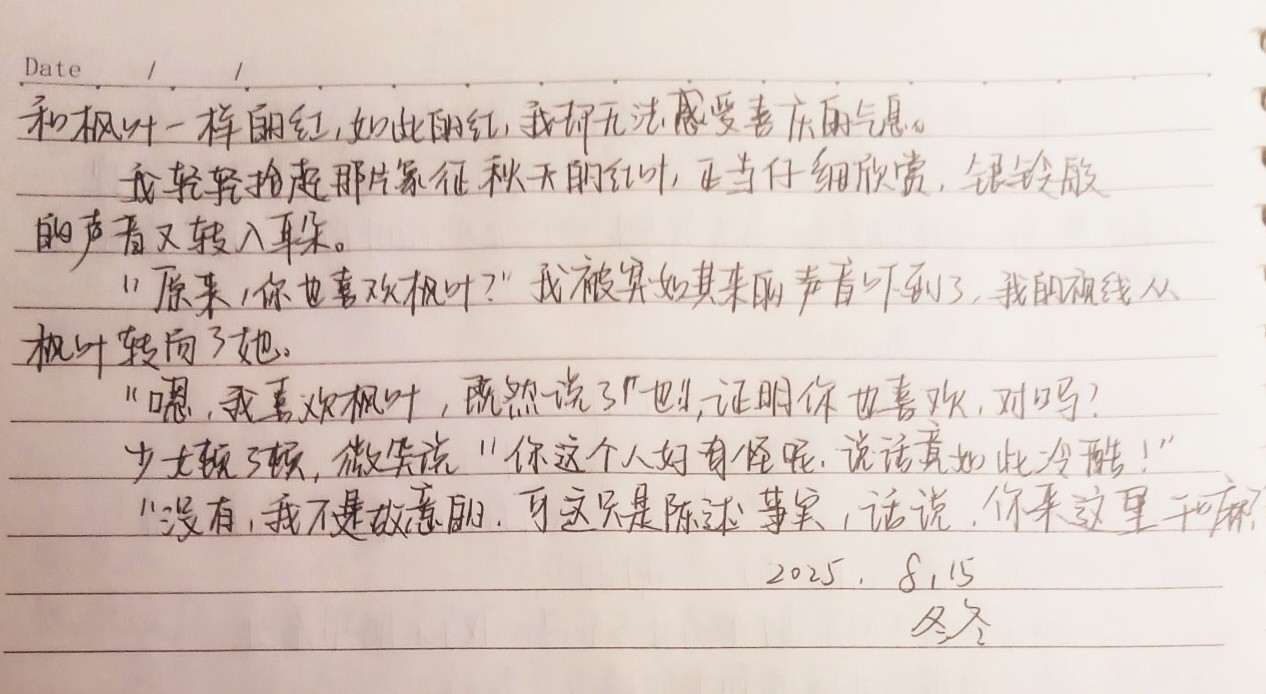 Date / /
和枫叶一样的红,如此的红,我却无法感受喜庆的气息。
我轻轻拾起那片象征秋天的红叶,正当仔细欣赏,银铃般
的声音又转入耳朵。
"原来,你也喜欢枫叶?"我被突如其来的声音吓到了,我的视线从
枫叶转向了她。
"嗯,我喜欢枫叶,既然说了『也』,证明你也喜欢,对吗?
少女顿了顿,微笑说"你这个人好有怪呢,说话竟如此冷酷!"
"没有,我不是故意的,可这只是陈述事实,话说,你来这里干嘛?
2025. 8,15
冬冬